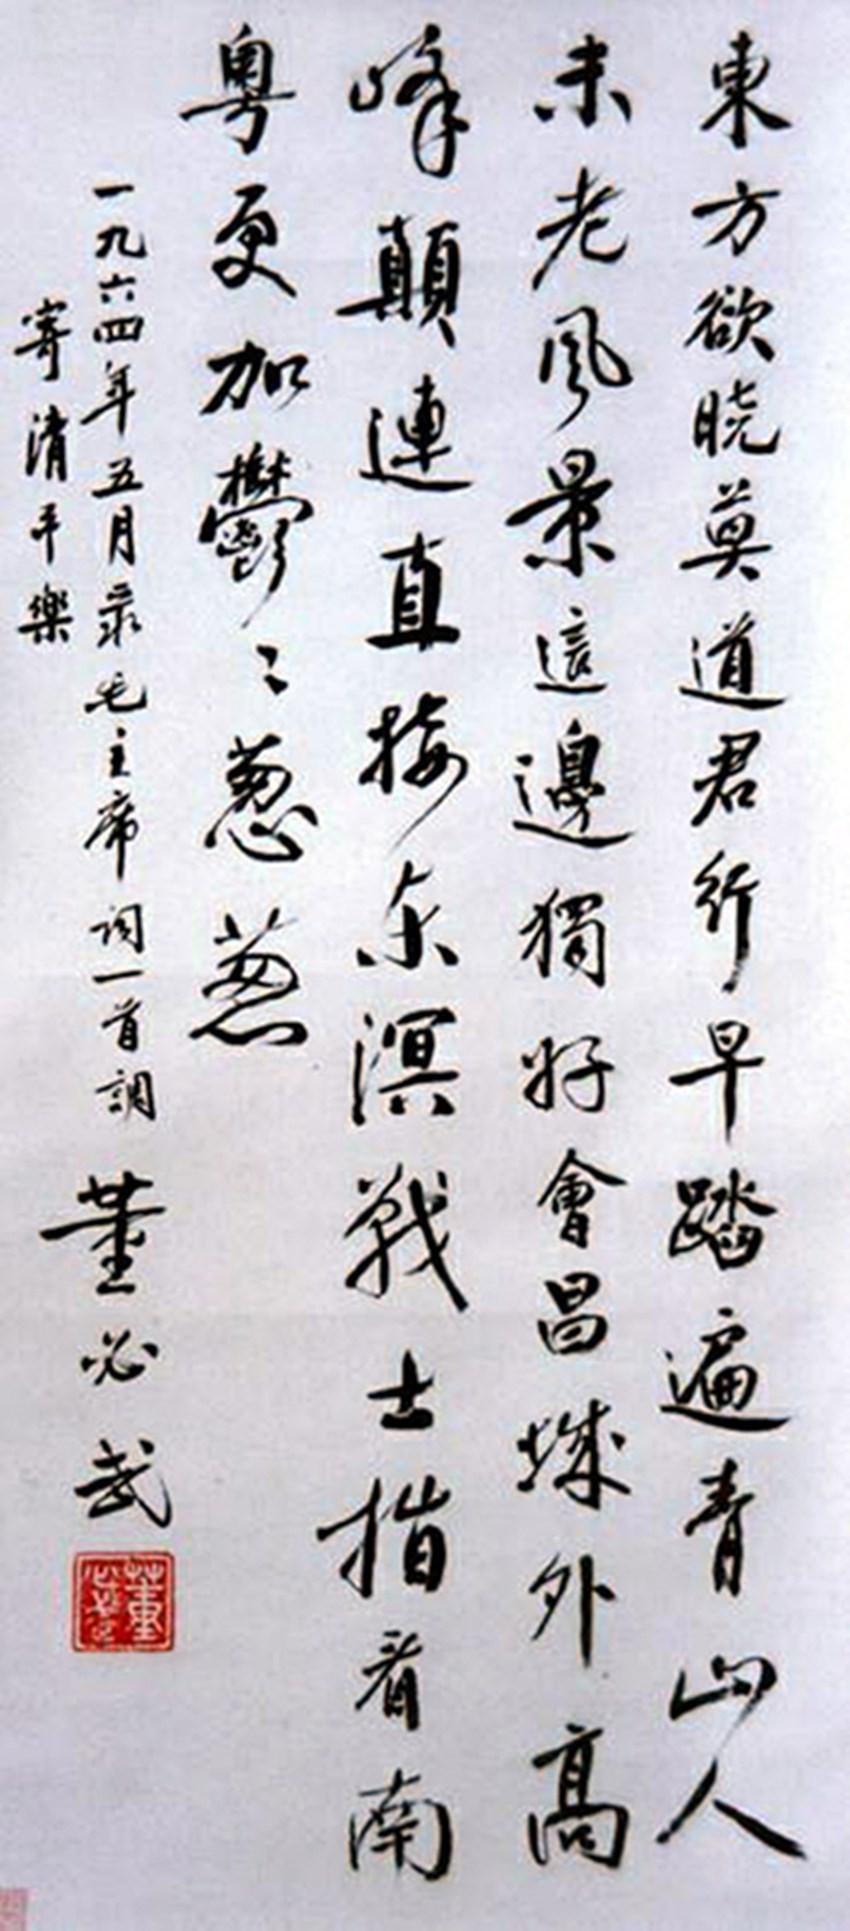 東方欲曉莫道君行早踏遍青山人
未老風景這邊獨好會昌城外高
峰顛連直接东溟戰士指看南
粵更加鬱〻葱葱
一九六四年五月录毛主席词一首調
寄清平樂
董必武